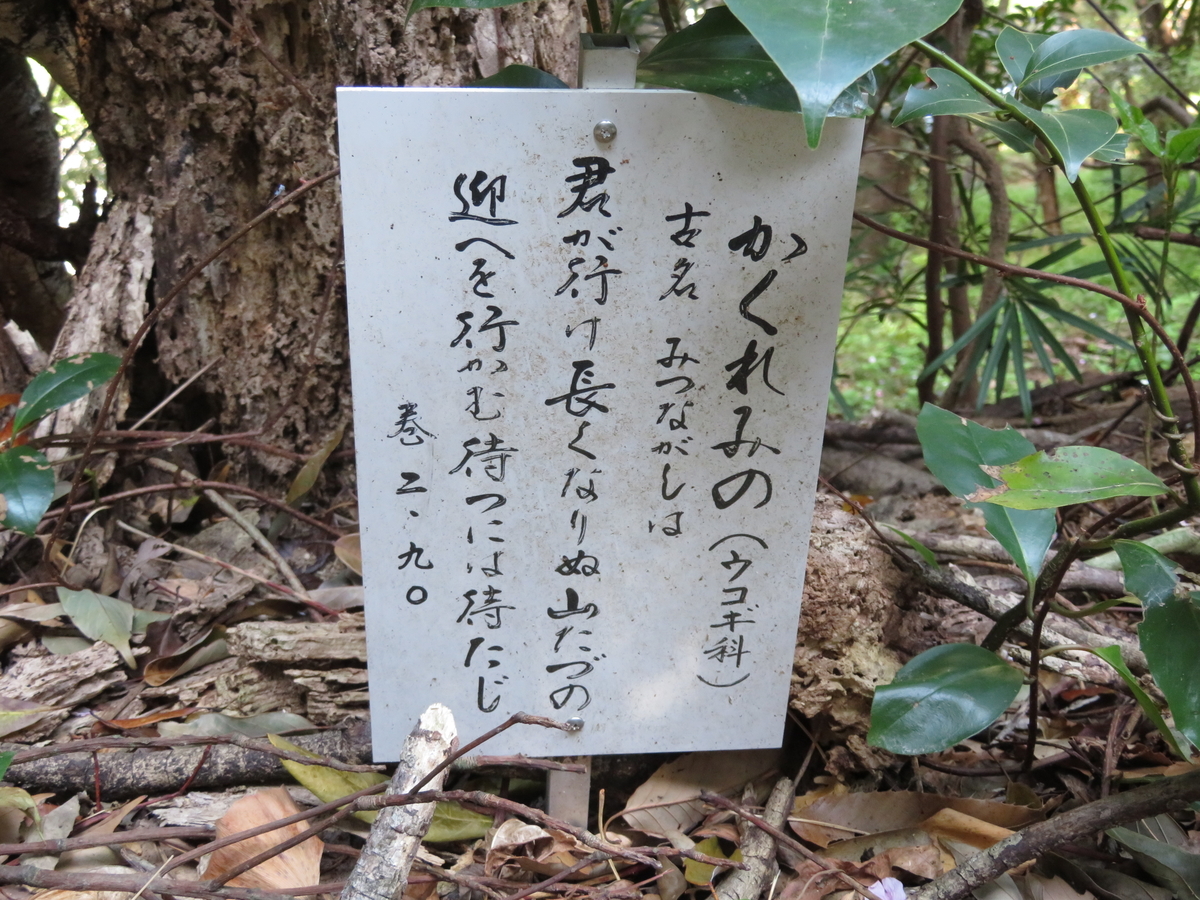 かくれみの（ウコギ科）
古名 みつながしは
君が行け長くなりぬ山たづの
迎へを行かむ待つには待たじ
巻二・九〇